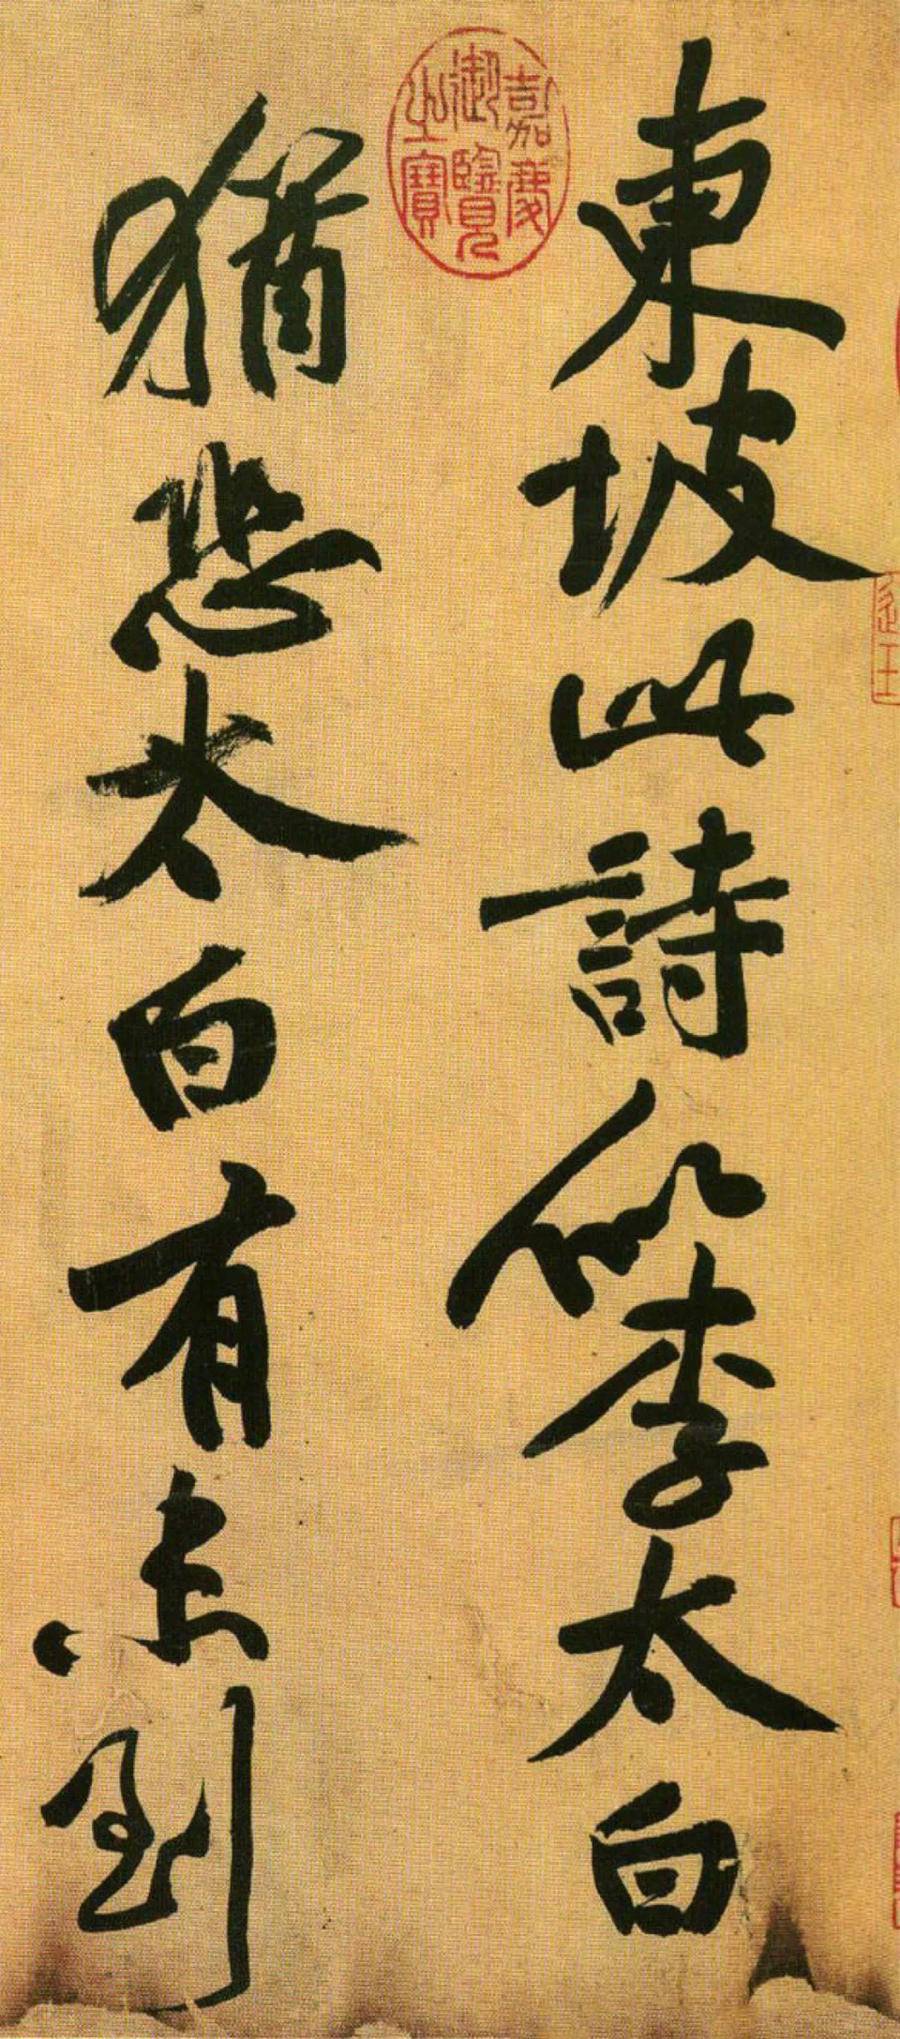 東坡此詩似李太白
猶恐太白有未到
嘉慶
御覽
之寶